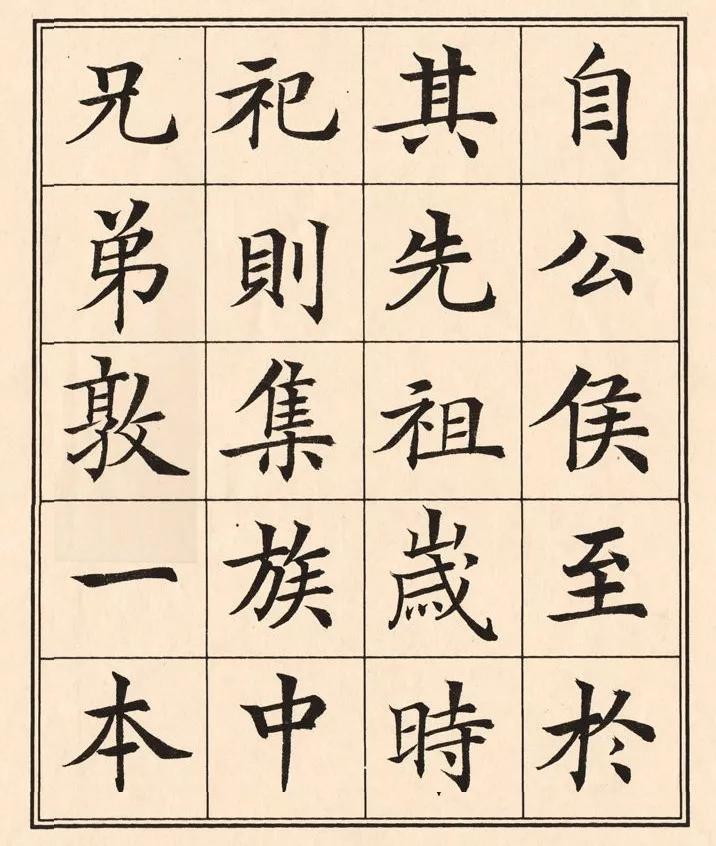 自公侯至於
其先祖歲時
祀則集族中
兄弟敦一本